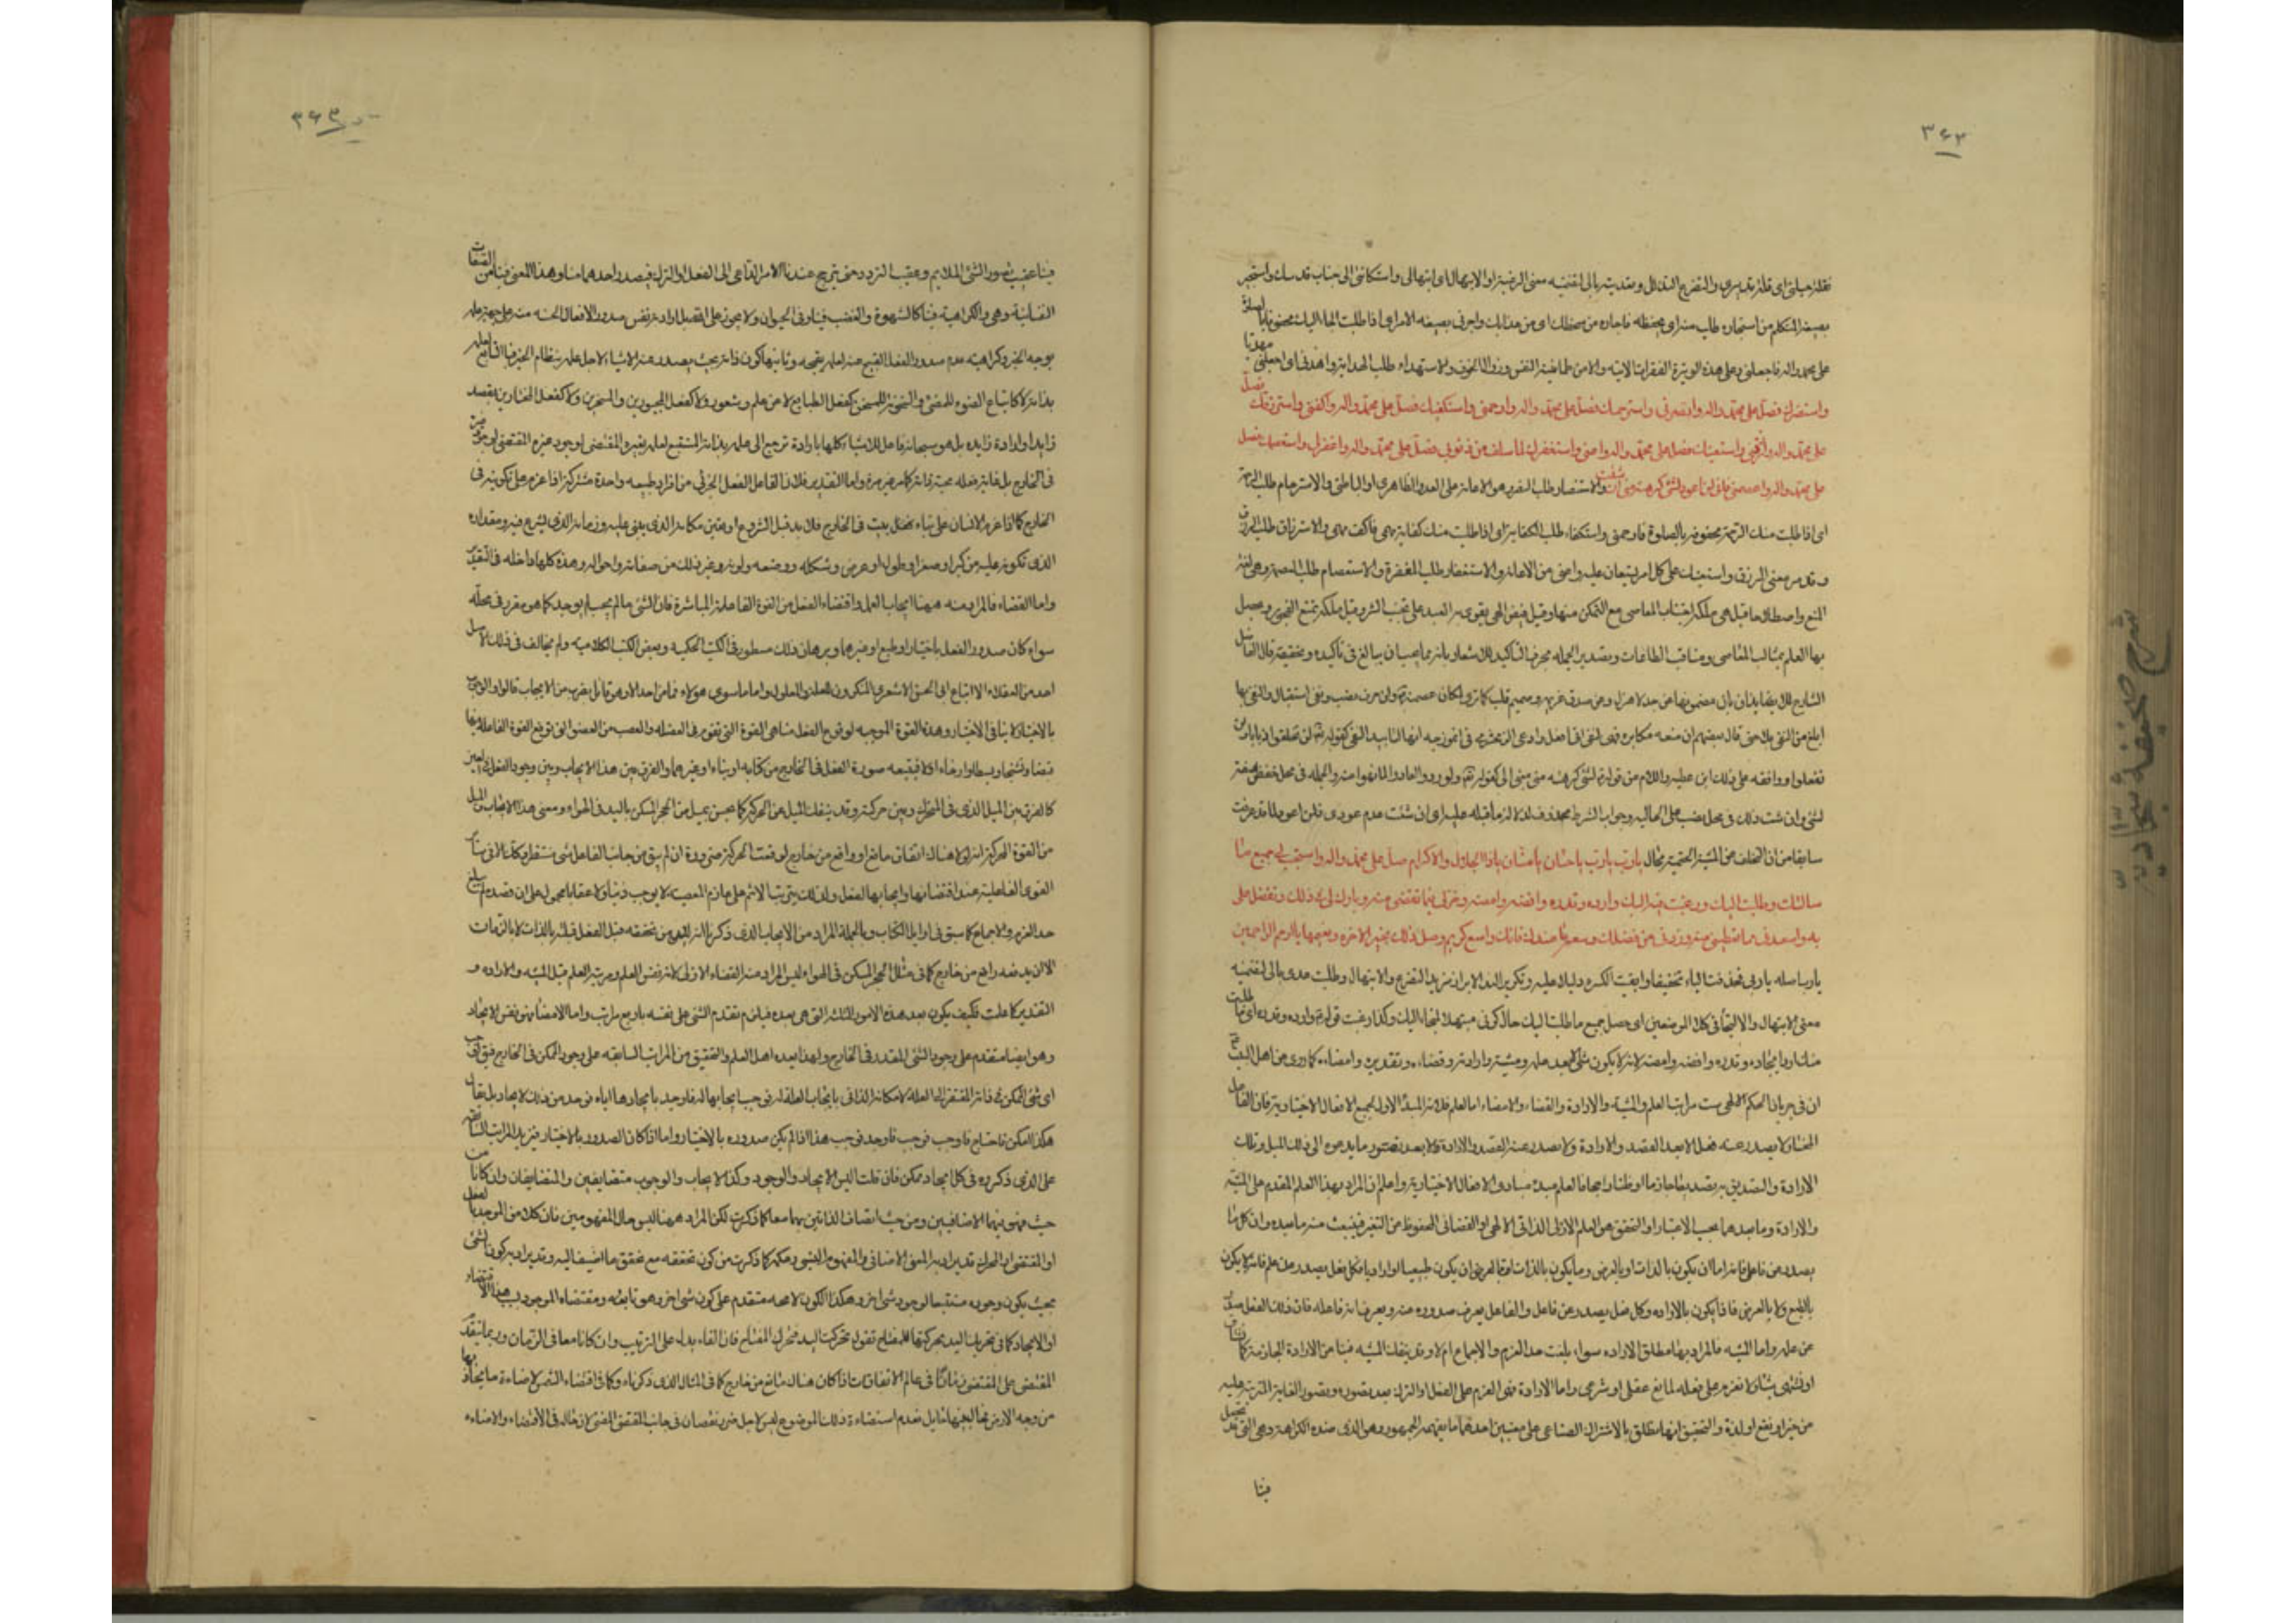 ٣٦٢
فقلة حيلتي اى قلة تدبيرى والتضرع التذلل وتعديته بالى لتضمينه معنى الرغبة او الابتهال اى ابتهالى واستكانتى الى جناب قدسك واستجير
بصيغة المتكلم من استجاره طلب منه اى يحفظه فاجاره من سخطك اى من عذابك واجرنى بصيغه الامر اى اذا طلبت الجاء اليك محفوفا بالصلوة
على محمد واله فاجعلنى وعلى هذه الوتيرة الفقرات الاتيه والامن طمانينة النفس وزوال الخوف والاستهداء طلب الهداية واهدنى اى اجعلنى مهديا
واستنصرك فصل على محمد واله وانصرنى واسترحمك فصل على محمد واله وارحمنى واستكفيك فصل على محمد واله واكفنى واسترزقك فصل
على محمد واله وارزقنى واستعينك فصل على محمد واله واعنى واستغفرك لما سلف من ذنوبى فصل على محمد واله واغفرلى واستعصمك فصل
على محمد واله واعصمنى فانى لن اعود لشئ كرهته منى ان شئت والاستنصار طلب النصرة وهو الاعانة على العدو الظاهرى او الباطنى والاسترحام طلب الرحمة
اى اذا طلبت منك الرحمة محفوفة بالصلوة فارحمنى واستكفاء طلب الكفاية اى اذا طلبت منك كفاية مهمى فاكف مهمى والاسترزاق طلب الرزق
وقد مر معنى الرزق واستعينك على كل امر يستعان عليه واعنى من الاعانه والاستغفار طلب المغفرة والاستعصام طلب العصمة وهى لغة
المنع واصطلاحا قيل هى ملكة اجتناب المعاصى مع التمكن منها وقيل فيض الهى يقوى به العبد على تجنب الشر وقيل ملكة تمنع الفجور ويحصل
بها العلم بمثالب المعاصى ومناقب الطاعات وتصدير الجمله بحرف التاكيد للاشعار بانه مما يجب ان يبالغ فى تاكيده وتحقيقه قال الفاضل
الشارح للايذان بان مضمونها عن جد لا هزل وعن صدق عزيمة وصميم قلب
ابلغ من النفى بلا حتى قال بعضهم ان منعه مكابره فهى لنفى انى افعل وادعى الزمخشرى فى انموزجه انها لتابيد النفى كقوله تعالى لن يخلقوا ذبابا ولن
تفعلوا ووافقه على ذلك ابن عطيه واللام من قوله لشئ كرهته منى بمعنى الى كقوله تعالى ولو ردوا لعادوا لما نهوا عنه والجمله فى محل خفض صفة
لشئ وان شئت ذلك فى محل نصب على الحاليه وجواب الشرط محذوف لدلالة ما قبله عليه اى ان شئت عدم عودى فلن اعود لما قد عرفت
سابقا من ان التخلف عن المشية الحتمية محال يارب يارب ياحنان يامنان ياذا الجلال والاكرام صل على محمد واله واستجب لى جميع ما
سالتك وطلبت اليك ورغبت فيه اليك وارده وقدره واقضه وامضه وخر لى فيما تقضى منه وبارك لى فى ذلك وتفضل على
به واسعدنى بما تعطينى منه وزدنى من فضلك وسعة ما عندك فانك واسع كريم وصل ذلك بخير الاخره ونعيمها يا ارحم الراحمين
يارب اصله ياربى فحذفت الياء تخفيفا وابقيت الكسره دليلا عليه وتكرير النداء لابراز مزيد التضرع والابتهال وطلب مدى بالى لتضمنه
معنى الابتهال والالتجا فى كلا الموضعين اى حصل جميع ما طلبت اليك حال كونى مبتهلا ملتجاء اليك وكذا رغبت قوله وارده وقدره اى ما طلبت
منك اردا يجاده وقدره واقضه وامضه لانه لا يكون شئ الا بعد علمه ومشيته وارادته وقضاءه وتقديره وامضاءه كما روى عن اهل البيت
الحكم الالهى ست مراتب العلم والمشية والارادة والقضاء والامضاء اما العلم فلانه المبدأ الاول لجميع الافعال الاختيارية فان الفاعل
المختار لا يصدر عنه فعل الا بعد القصد والارادة ولا يصدر عنه القصد والارادة الا بعد تصور ما يدعوه الى ذلك الميل وتلك
الارادة والتصديق به تصديقا جازما او ظنا راجحا فالعلم مبدء مبادى الافعال الاختيارية واعلم ان المراد بهذا العلم المقدم على المشية
والارادة وما بعدهما بحسب الاعتبار او التحقق هو العلم الازلى الذاتى الالهى او القضائى المحفوظ عن التغير فينبعث منه ما بعده وان كل ما
يصدر عن فاعل فانه اما ان يكون بالذات او بالعرض وما يكون بالذات اما ان يكون طبيعيا او اراديا فكل فعل يصدر عن علم فانه لا يكون
بالطبع ولا بالعرض فاذا يكون بالاراده وكل فعل يصدر عن فاعل والفاعل يعرف صدوره عنه ويعرف انه فاعله فان ذلك الفعل صدر
عن علمه واما المشيه فالمراد بها مطلق الاراده سواء بلغت حد العزم والاجماع ام لا وقد ينفك المشيه فينا عن الارادة الجازمة كما
او نشتهى شيئا ولا نعزم على فعله لمانع عقلى او شرعى واما الارادة فهى العزم على الفعل او الترك بعد تصوره وتصور الغاية المترتبة عليه
من خير او نفع او لذة والتحقيق انها تطلق بالاشتراك الصناعى على معنيين احدهما ما يفهمه الجمهور وهو الذى ضده الكراهة وهى التى قد تحصل
فينا
٣٦٣
فينا عقيب تصور الشئ الملايم وعقيب التردد حتى يترجح عندنا الامر الداعى الى الفعل او الترك فيصدر احدهما منا وهذا المعنى فينا من الصفات
النفسانية وهى والكراهية فينا كالشهوة والغضب فينا وفى الحيوان ولا يجوز على الله بل ارادته نفس صدور الافعال الحسنه منه على جهة علمه
بوجه الخير وكراهيته عدم صدور الفعل القبيح عنه لعلمه بقبحه وثانيهما كون ذاته بحيث يصدر عنه الاشياء لاجل علمه بنظام الخير فيها التابع لعلمه
بذاته لا كاتباع الضوء للمضئ والسخونة للمسخن كفعل الطبايع لا عن علم وشعور ولا كفعل المجبورين والمسخرين ولا كفعل المختارين بقصد
زايد او ارادة زايده بل هو سبحانه فاعل للاشياء كلها بارادة ترجع الى علمه بذاته المستتبع لعلمه بغيره المقتضى لوجود غيره
فى الخارج واما التقدير فلان الفاعل لفعل الجزئى من افراد طبيعه واحدة مشتركة اذا عزم على تكوينه فى
الخارج كما اذا عزم الانسان على بناء بيت فى الخارج فلا بد قبل الشروع ان يعين مكانه الذى يبنى عليه وزمانه الذى يشرع فيه ومقداره
الذى تكونه عليه من كبر او صغر او طول او عرض وشكله ووضعه ولونه وغير ذلك من صفاته واحواله وهذه كلها داخله فى التقدير
واما القضاء فالمراد منه هيهنا ايجاب العمل واقتضاء الفعل من القوة الفاعلة المباشرة فان الشئ ما لم يجب لم يوجد كما هو مقرر فى محله
سواء كان صدور الفعل باختيار او طبع او غيرهما وبرهان ذلك مسطور فى الكتب الحكمية وبعض الكتب الكلاميه ولم يخالف فى ذلك الاصل
احد من العقلاء الا اتباع ابى الحسن الاشعرى المنكرون للعلة والمعلول واما ما سوى هولاء فما من احد الا وهو قائل بضرب من الايجاب قالوا والوجوب
بالاختيار لا ينافى الاختيار وهذه القوة الموجبه لوقوع الفعل منا هى القوة التى تقوم فى العضله والعصب من العضو التى توقع القوة الفاعلة فيها
قبضا وتشنيجا وبسطا وارخاء اولا فيتبعه صورة الفعل فى الخارج من كتابه او بناء او غيرهما والفرق بين هذا الايجاب وبين وجود الفعل فى العين
كالفرق بين الميل الذى فى المتحرك وبين حركته وقد ينفك الميل عن الحركة كما يحس بميل من الحجر المسكن باليد فى الهواء ومعنى هذا الايجاب والميل
من القوة المحركة انه لولا هناك اتفاق مانع او دافع من خارج لوقعت الحركة ضرورة ان لم يبق من جانب الفاعل شئ منتظر
القوى الفاعلية عند اقتضائها وايجابها الفعل ولذلك يترتب الاثم على عازم المعصيه
حد العزم والاجماع كما سبق فى اوايل الكتاب وبالجملة المراد من الايجاب الذى ذكرنا انه لابد من تحققه قبل الفعل قبلية بالذات لا بالزمان
الا ان يدفعه دافع من خارج كما فى مثال الحجر المسكن فى الهواء ليس المراد منه القضاء الازلى لانه نفس العلم ومرتبة العلم قبل المشيه والاراده و
التقدير كما علمت فكيف يكون بعد هذه الامور الثلثة التى هى بعده فيلزم تقدم الشئ على نفسه باربع مراتب واما الامضاء فهو نفس الايجاد
وهو ايضا متقدم على وجود الشئ المقدر فى الخارج ولهذا يعده اهل العلم والتحقيق من المراتب السابقه على وجود الممكن فى الخارج
اى شئ الممكن فى ذاته افتقر الى العلة لامكانه الذاتى بايجاب العلة له فوجب بايجابها له فاوجد بايجادها اياه فوجد
هكذا امكن فاحتاج فاوجب فوجب فاوجد فوجد هذا اذا لم يكن صدوره بالاختيار واما اذا كان الصدور بالاختيار فتزيد المراتب
على الذى ذكروه فى كل ايجاد ممكن فان قلت اليس الايجاد والوجود وكذا الايجاب والوجوب متضايفين والمتضايفان وان كانا من
حيث مفهوميهما الاضافيين ومن حيث اتصاف الذاتين بهما معا كما ذكرت لكن المراد هيهنا ليس حال المفهومين فان كلا من الموجد
او المقتضى او المحرك قد يراد به المعنى الاضافى والمفهوم النسبى وحكمه كما ذكرت من كون تحققه مع تحقق ما اضيف اليه وقد يراد به كون الشئ
بحيث يكون وجوده مستتبعا لوجود شئ اخر وهكذا الكون لا محه متقدم على كون شئ اخر وهو تابعه ومقتضاه الموجود بهذا الاقتضاء
او الايجاد كما فى تحريك اليد بحركتها للمفتاح تقول تحركت اليد فتحرك المفتاح فان الفاء يدل على الترتيب وان كانا معا فى الزمان وربما يتقدم
المقتضى على المقتضى زمانا فى عالم الاتفاقات اذا كان هناك مانع من خارج كما فى المثال الذى ذكرناه وكما فى اقتضاء الشمس لاضاءة ما يحاذيها
من وجه الارض عدم استضاءة ذلك الموضوع ليس لاجل نقصان فى جانب المقتضى لان حاله فى الاقتضاء والاضاءه
شرح صحيفة سجادية